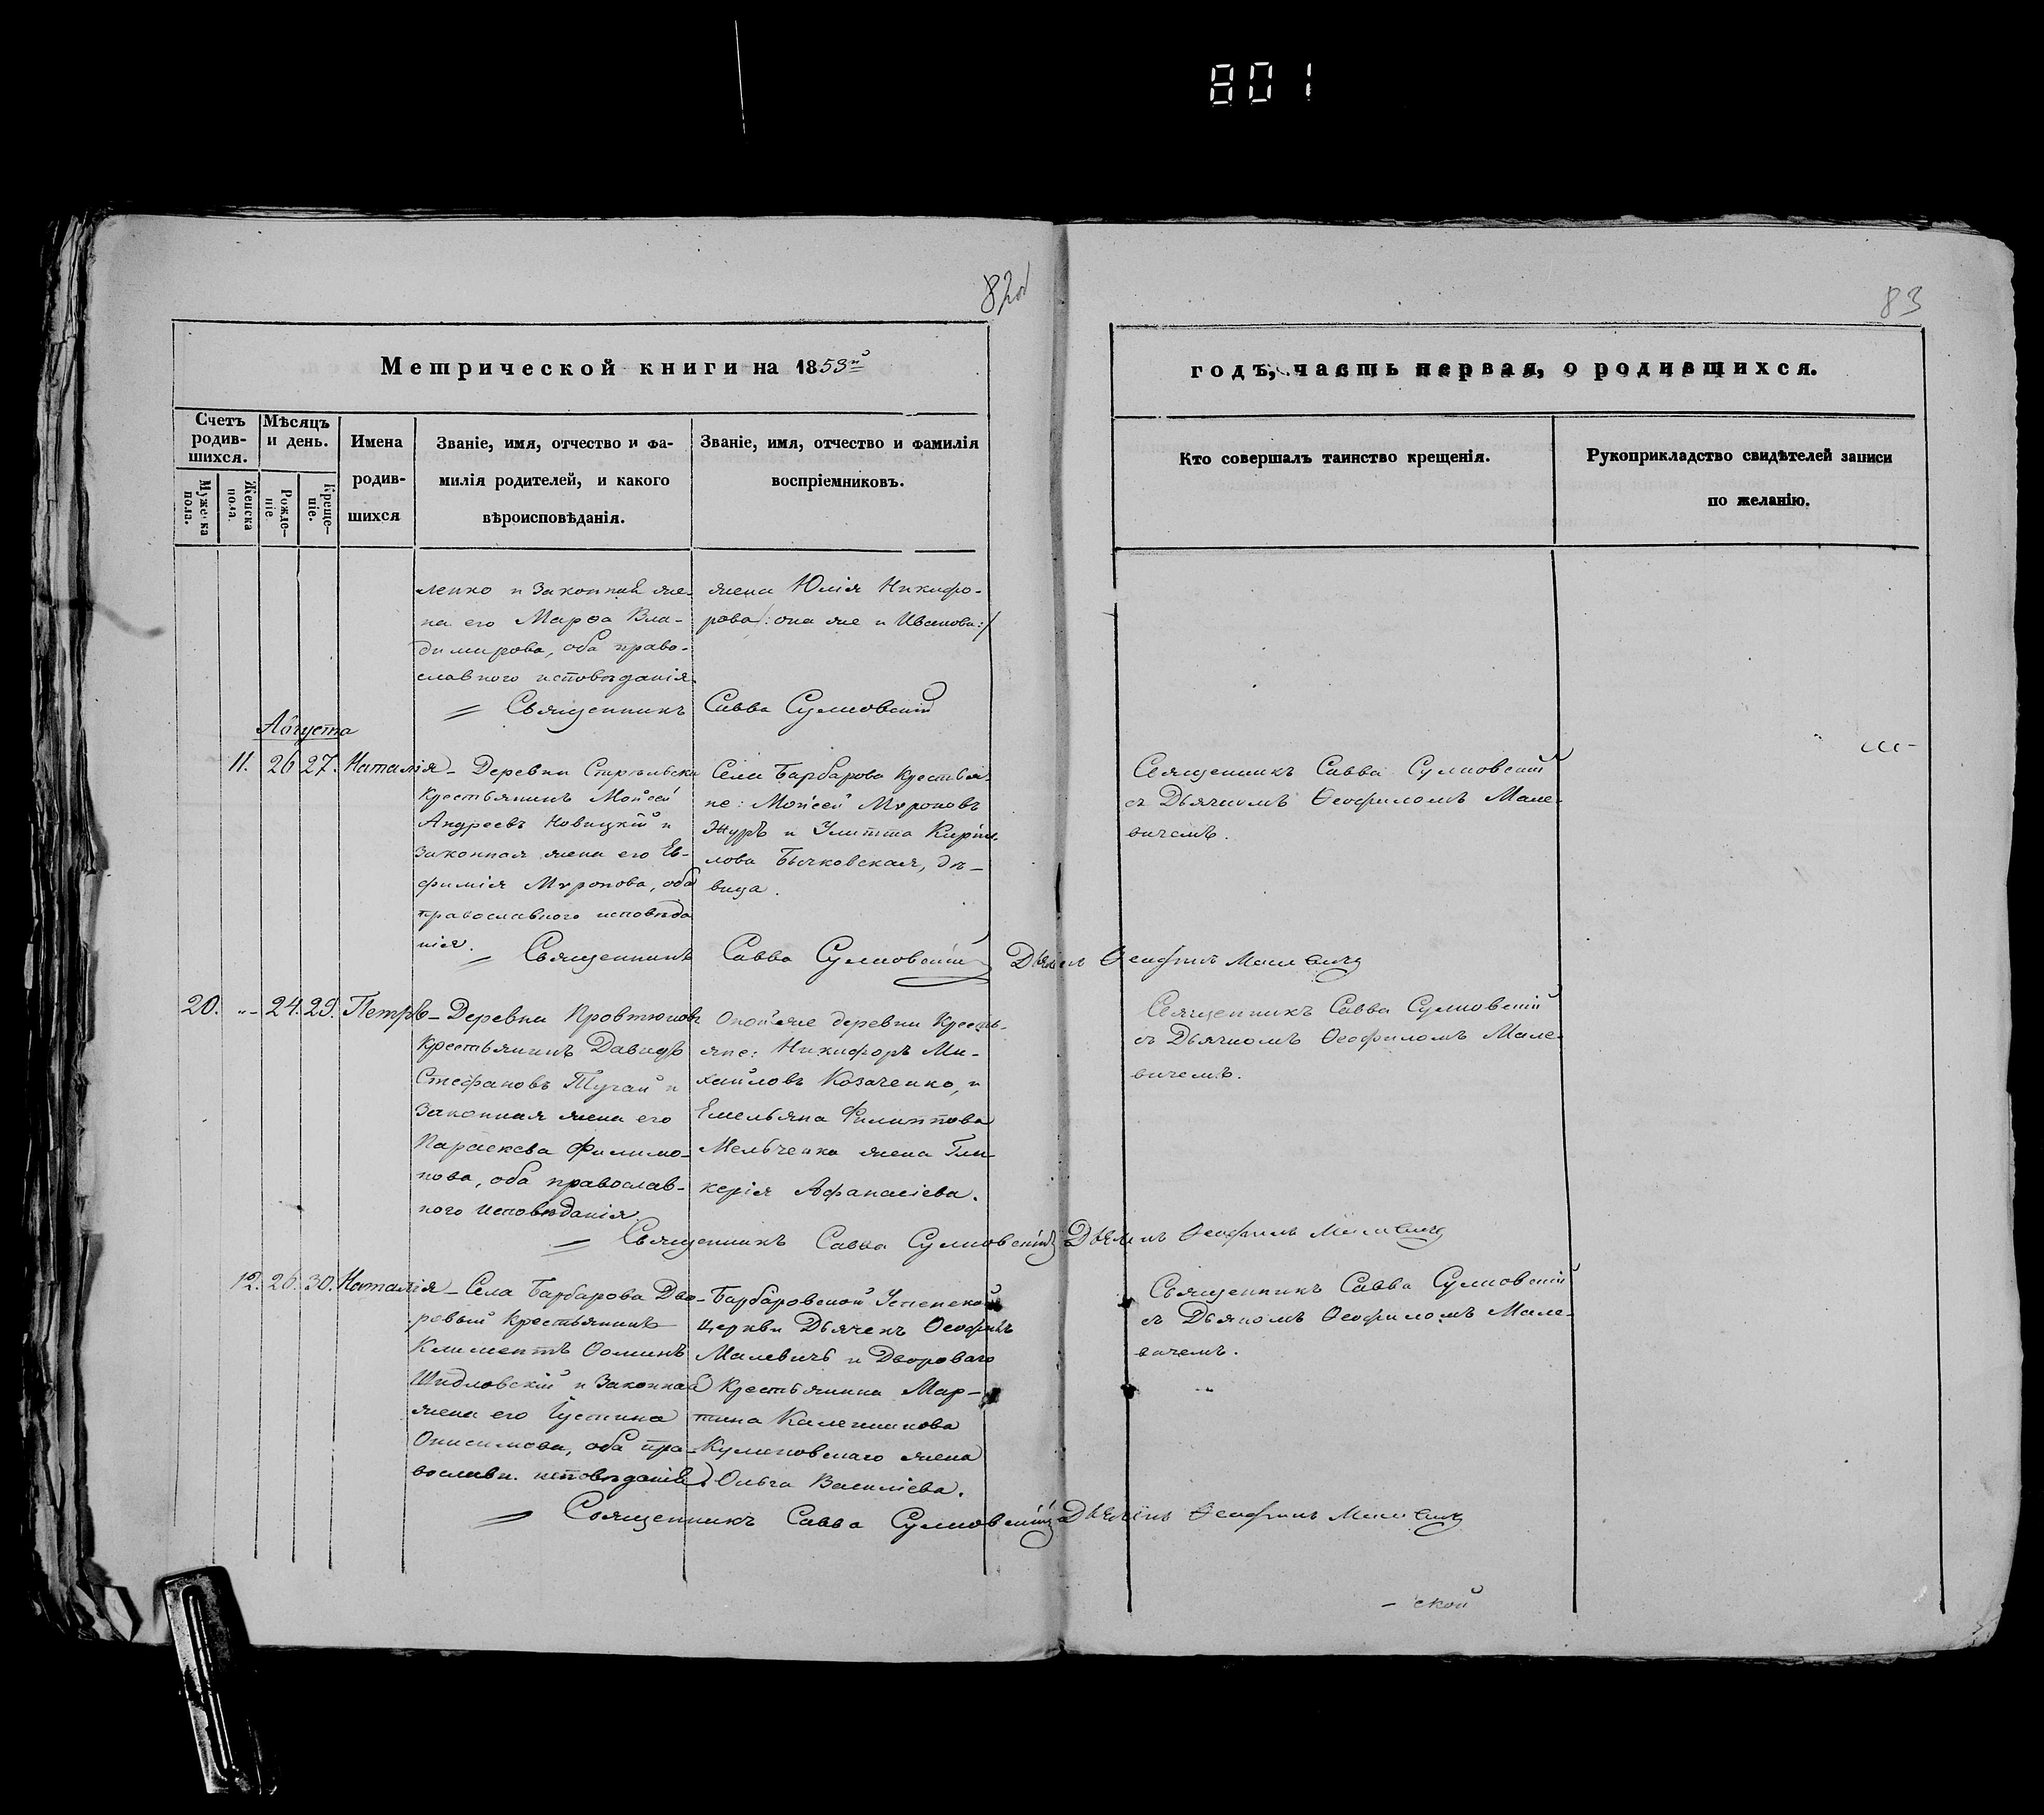 801
82об
83
Метрической книги на 1853й
годъ, часть первая, о родившихся.
Счетъ родив-шихся.
Мѣсяцъ и день.
Имена родив-шихся
Званіе, имя, отчество и фа-
милія родителей, и какого
вѣроисповѣданія.
Званіе, имя, отчество и фамилія
воспріемниковъ.
Кто совершалъ таинство крещенія.
Рукоприкладство свидѣтелей записи
по желанію.
Мужеска пола.
Женска пола.
Рожде-ніе
Креще-ніе.
ленко и законная же-
на его Марѳа Вла-
димирова, оба право-
славного исповѣданія.
жена Юлія Никифо-
рова /: она же и Иванова :/
Священникъ Савва Сулковскій
Августа
11. 26 27. Наталія
Деревни Стрѣльска
крестьянинъ Моисей
Андреевъ Новицкій и
законная жена его Ев-
фимія Мѵронова, оба
православного исповѣда
нія.
Села Барбарова крестья-
не: Моисей Мѵроновъ
Журъ и Улитта Кирил-
лова Бычковская, дѣ-
вица.
Священникъ Савва Сулковскій
съ Дьячкомъ Ѳеофиломъ Мале-
вичемъ.
Священникъ Савва Сулковскій Дьячекъ Ѳеофилъ Малевичъ
20. „– 24. 29. Петръ
Деревни Провтюковъ
крестьянинъ Давидъ
Стефановъ Тугай и
законная жена его
Параскева Филимо-
нова, оба православ-
ного исповѣданія
Оной же деревни кресть-
яне: Никифоръ Ми-
хайловъ Козаченко, и
Емельяна Филиппова
Мельченка жена Гли-
керія Афанасіева.
Священникъ Савва Сулковскій
съ Дьячкомъ Ѳеофиломъ Мале-
вичемъ.
Священникъ Савва Сулковскій Дьячекъ Ѳеофилъ Малевичъ
12. 26. 30. Наталія
Села Барбарова Дво-
ровый крестьянинъ
Климентъ Ѳоминъ
Шидловскій и законная
жена его Іустина
Онисимова, оба пра-
вославн. исповѣданія.
Барбаровской Успенской
церкви Дьячекъ Ѳеофилъ
Малевичъ и Двороваго
крестьянина Мар-
тина
Куликовскаго жена
Ольга Василіева.
Священникъ Савва Сулковскій
съ Дьячкомъ Ѳеофиломъ Мале-
вичемъ.
Священникъ Савва Сулковскій Дьячекъ Ѳеофилъ Малевичъ
– ской